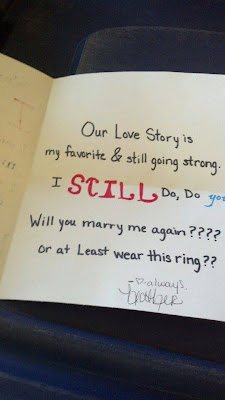 Our Love Story is
my favorite & still going strong.
I STILL Do, Do you
Will you marry me again????
or at Least wear this ring??
-♡always,